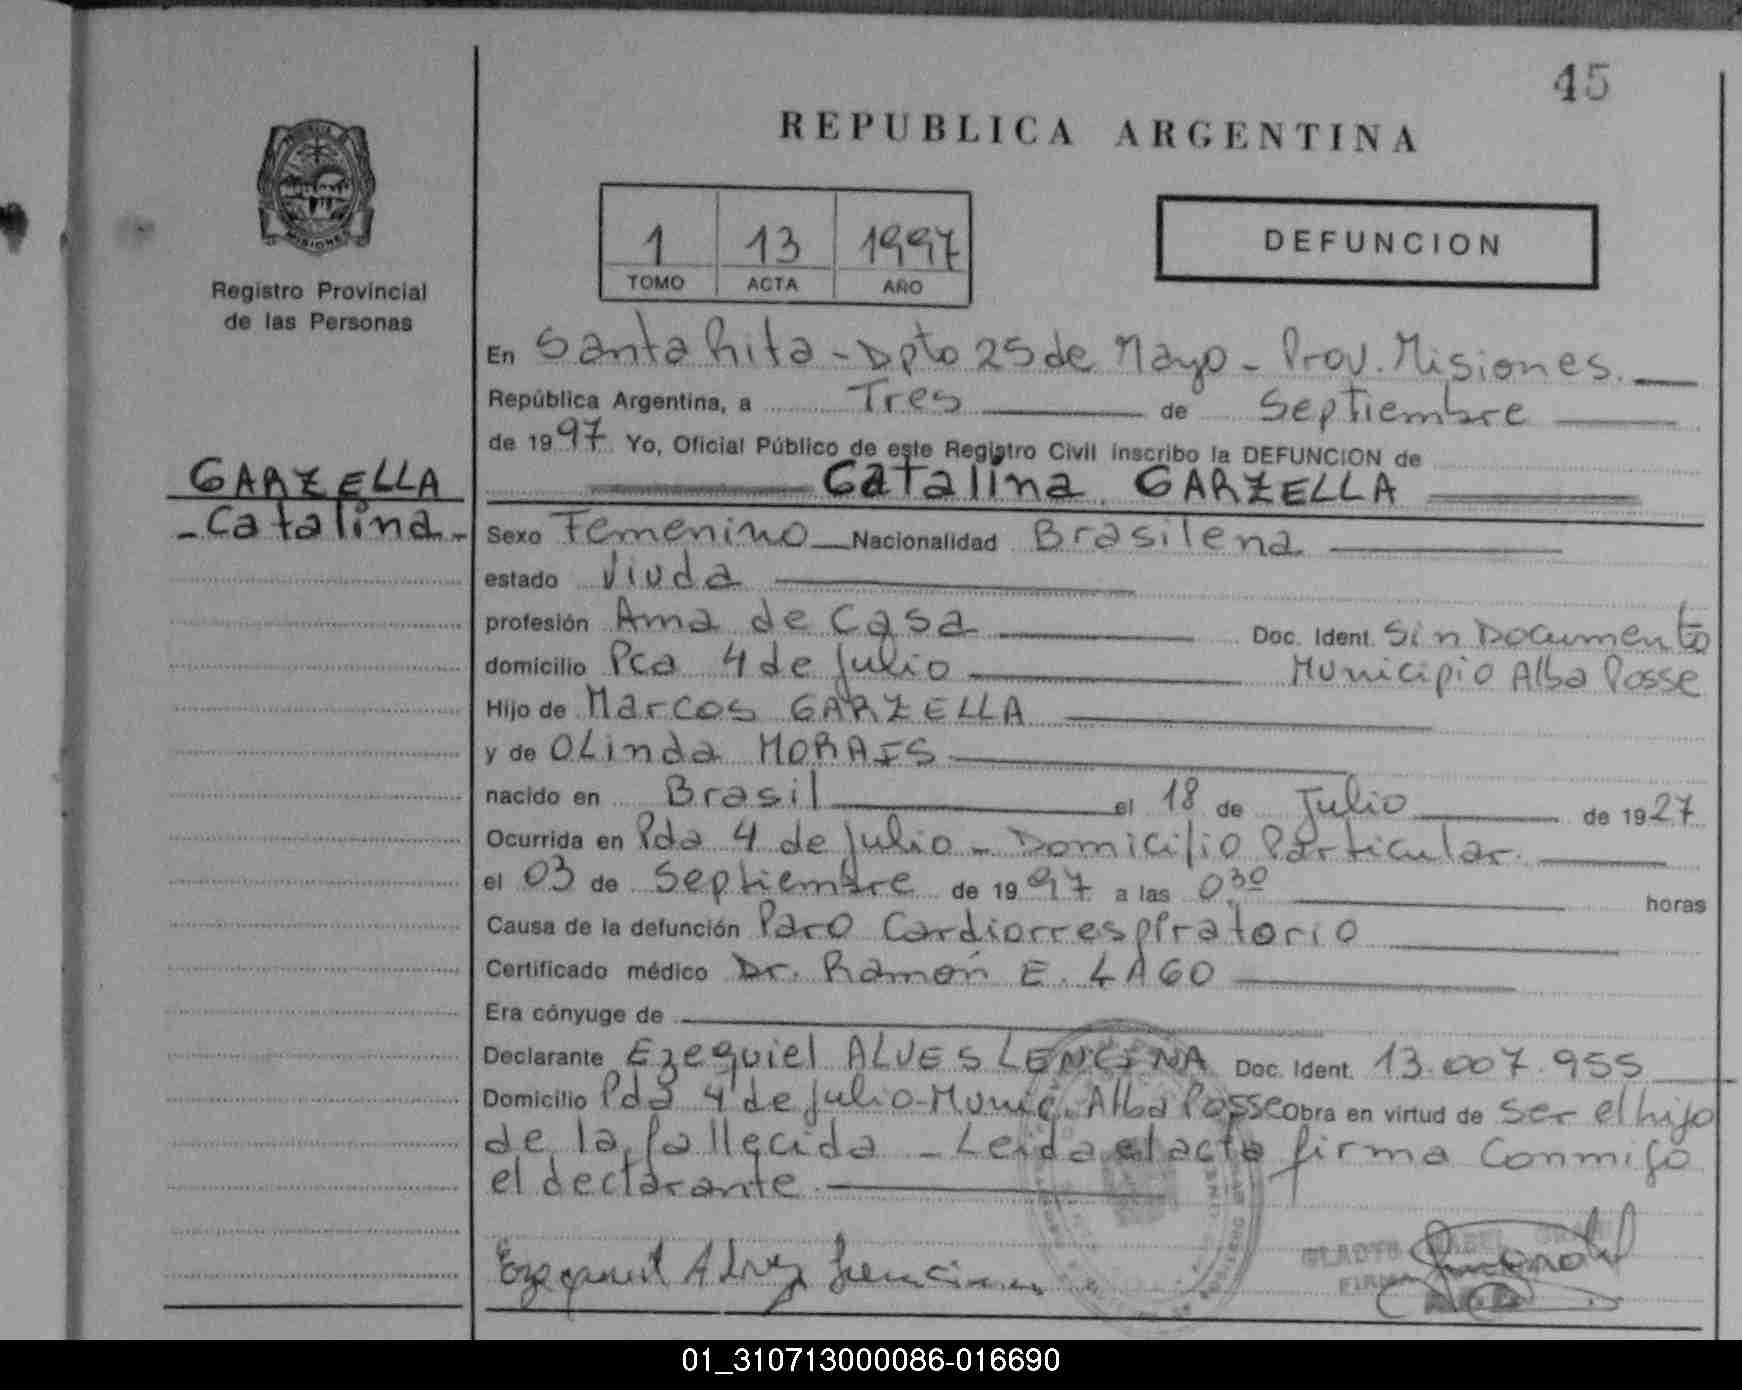 45
REPUBLICA ARGENTINA
1 13 1997
TOMO ACTA AÑO
DEFUNCION
MISIONES
Registro Provincial
de las Personas
GARZELLA
- Catalina -
En Santa Rita - Dpto 25 de Mayo - Prov. Misiones.
República Argentina, a Tres de Septiembre
de 1997 Yo, Oficial Público de este Registro Civil inscribo la DEFUNCION de
Catalina GARZELLA
Sexo Femenino Nacionalidad Brasilena
estado Viuda
profesión Ama de Casa Doc. Ident. Sin Documento
domicilio Pca 4 de Julio Municipio Alba Posse
Hijo de Marcos GARZELLA
y de OLinda MORAIS
nacido en Brasil el 18 de Julio de 1927
Ocurrida en Pda 4 de Julio - Domicilio Particular.
el 03 de Septiembre de 1997 a las 0,30 horas
Causa de la defunción Paro Cardiorrespiratorio
Certificado médico Dr. Ramón E. LAGO
Era cónyuge de
Declarante Ezequiel ALVES LENCINA Doc. Ident. 13.007.955
Domicilio Pda 4 de Julio-Munic. Alba Posse Obra en virtud de Ser el hijo
de la fallecida - Leida el acta firma Conmigo
el declarante.
GLADYS
FIRMA
01_310713000086-016690